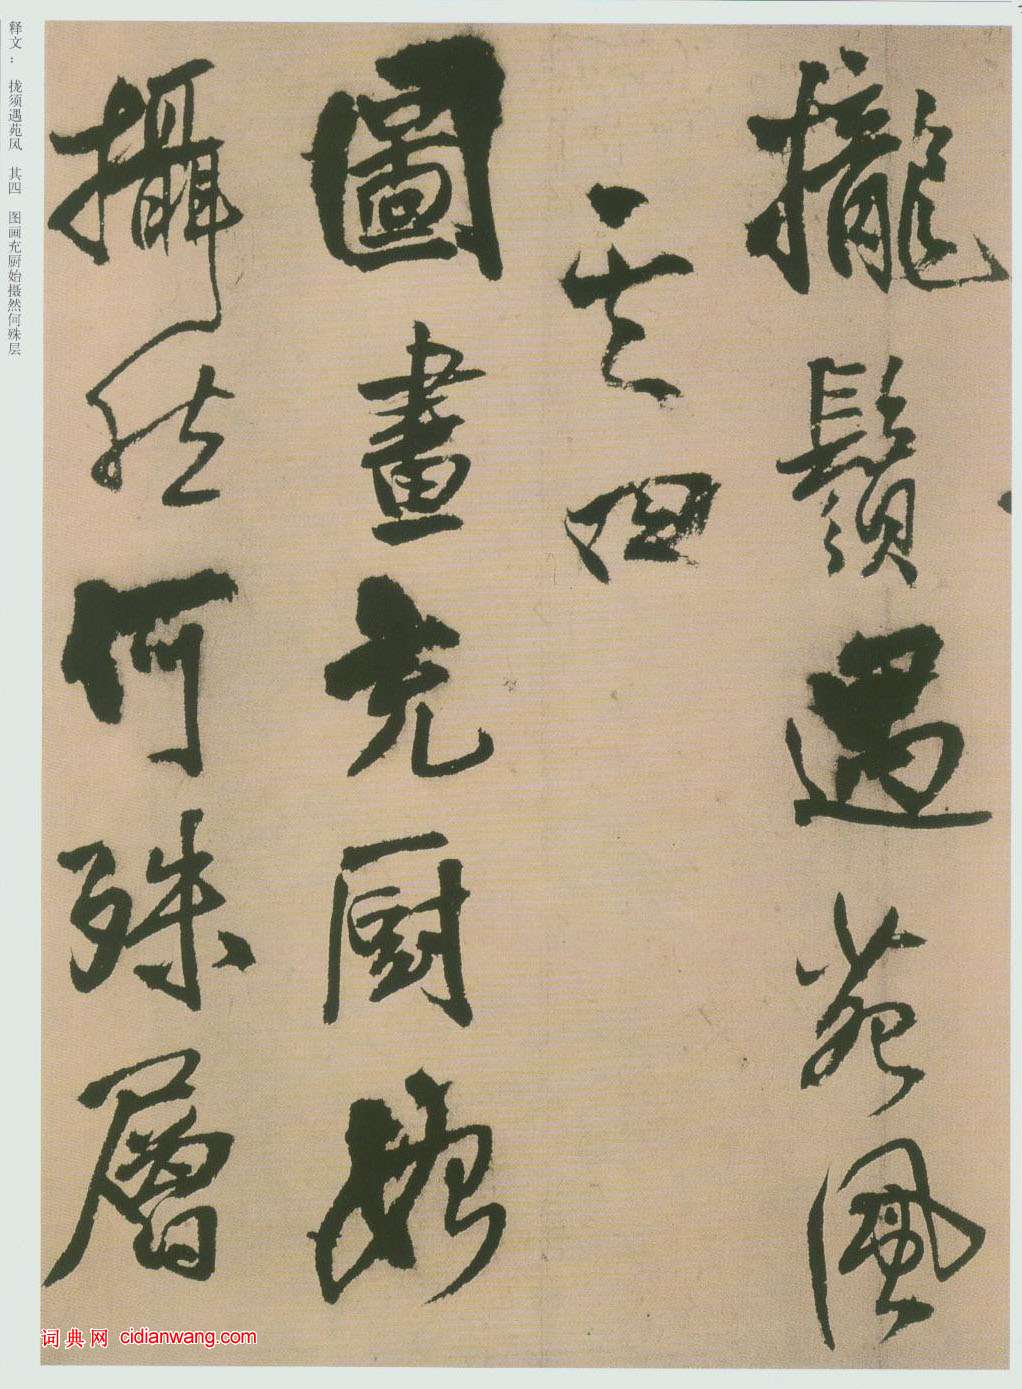 攏鬚遇苑風
其四
圖畫充厨始
攝然何殊層
释文： 拢须遇苑风 其四 图画充厨始摄然何殊层
词典网 cidianwang.com